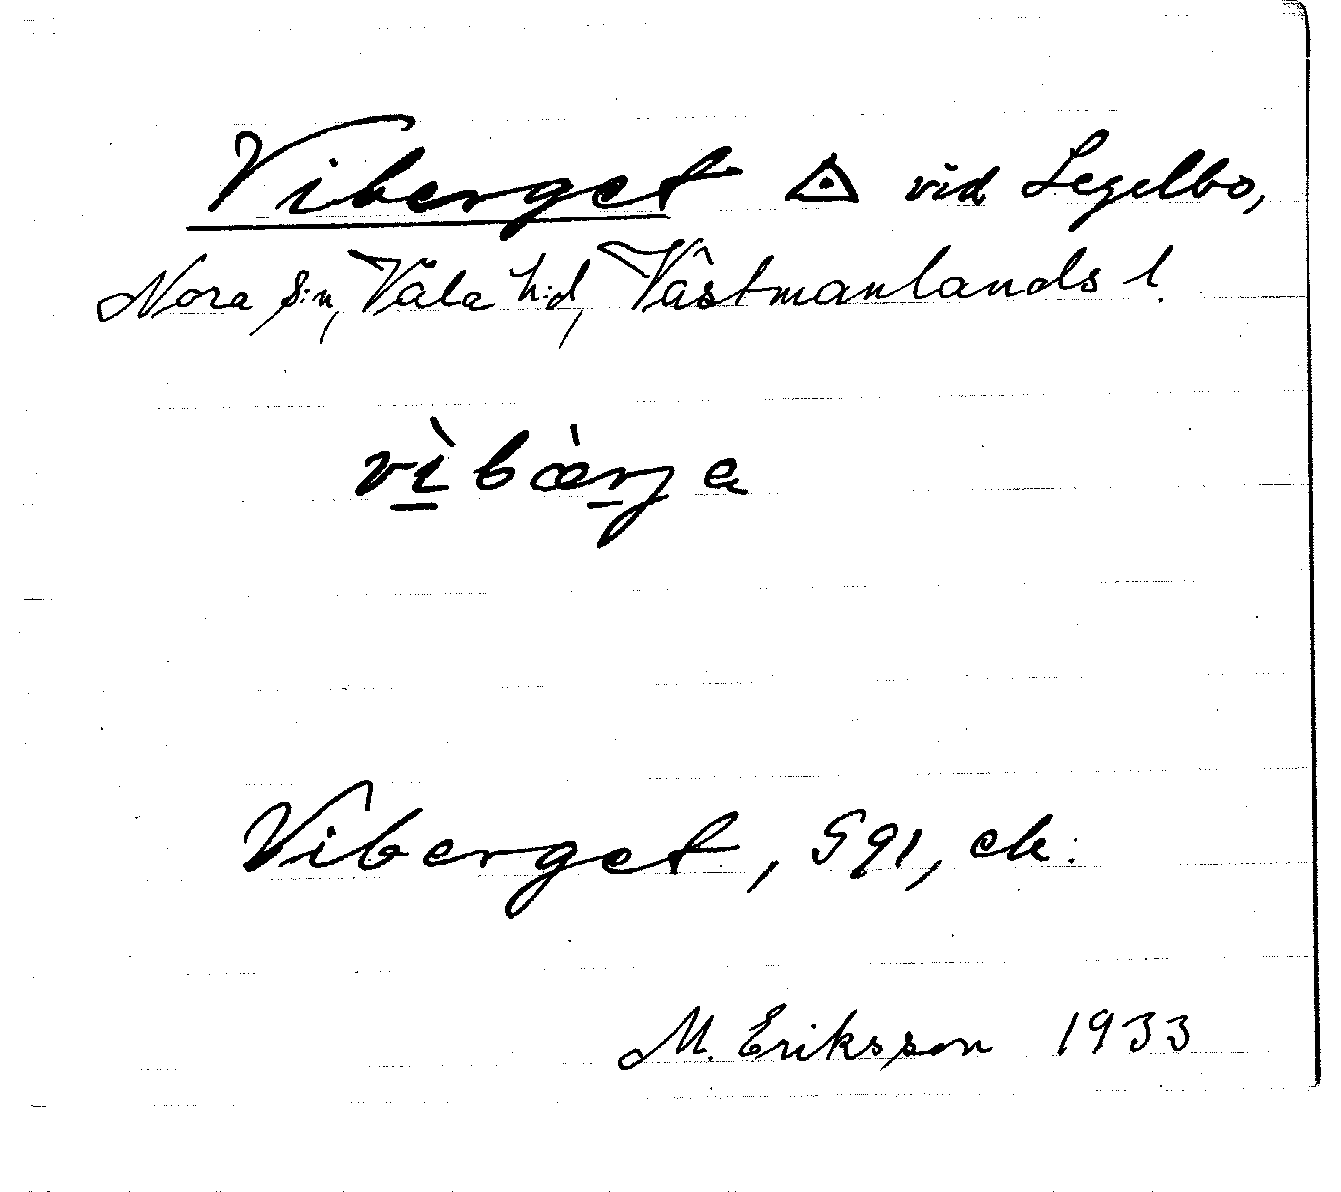 Viberget ◬ vid Legelbo,
Nora s:n, Våla h:d, Västmanlands l.
vìbæ̀rja
Viberget, S91, ek.
M. Eriksson 1933